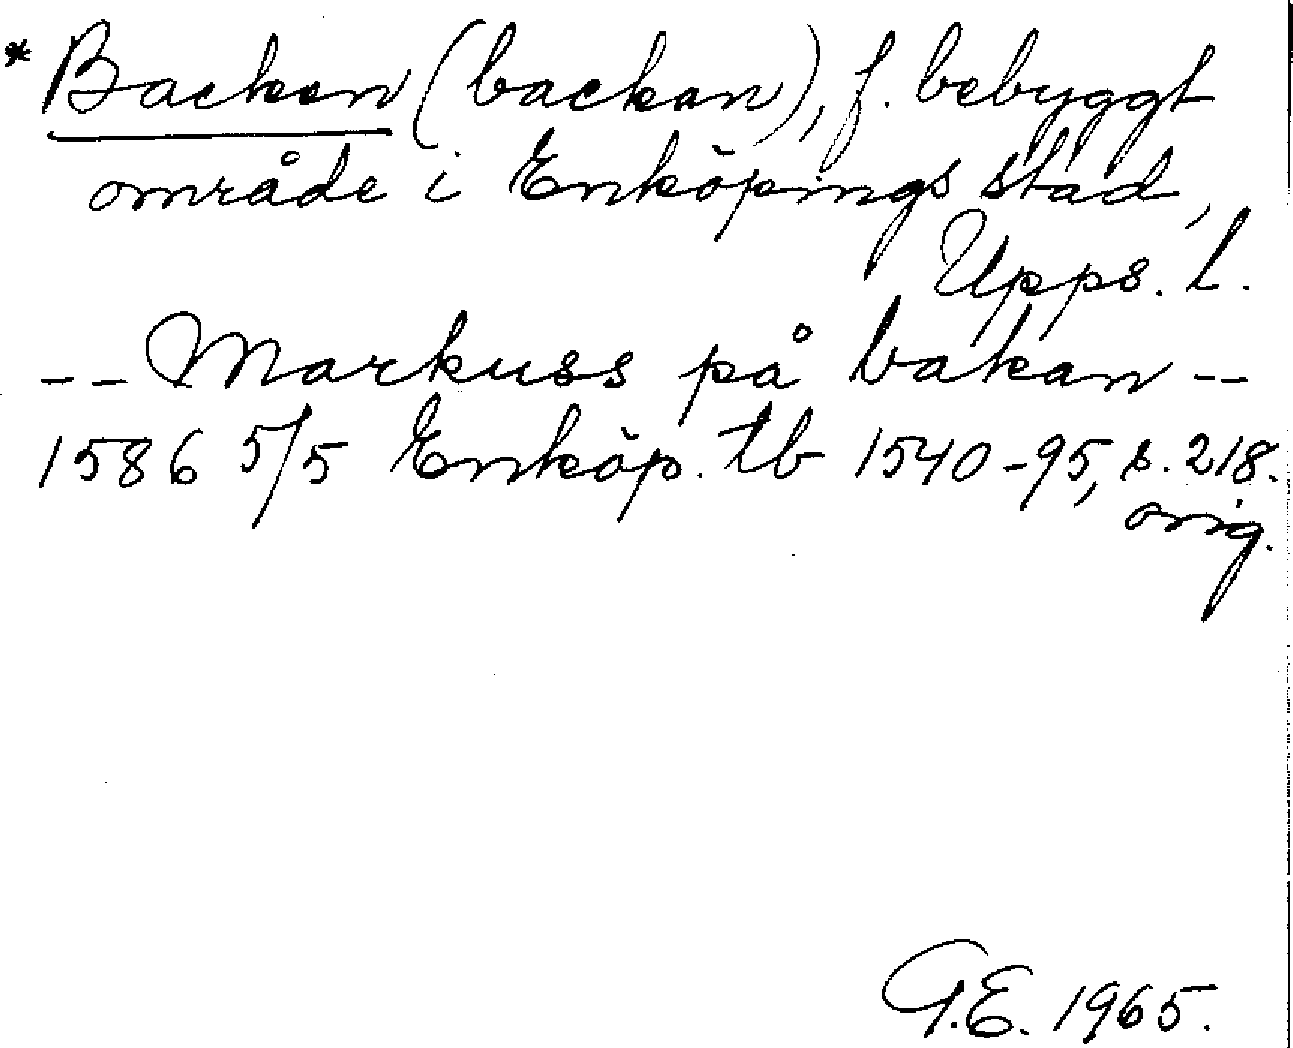 * Backen (backan), f. bebyggt
område i Enköpings stad,
Upps. l.
-- Markuss på bakan --
1586 5/5 Enköp. tb 1540-95, s. 218.
orig.
G.E. 1965.